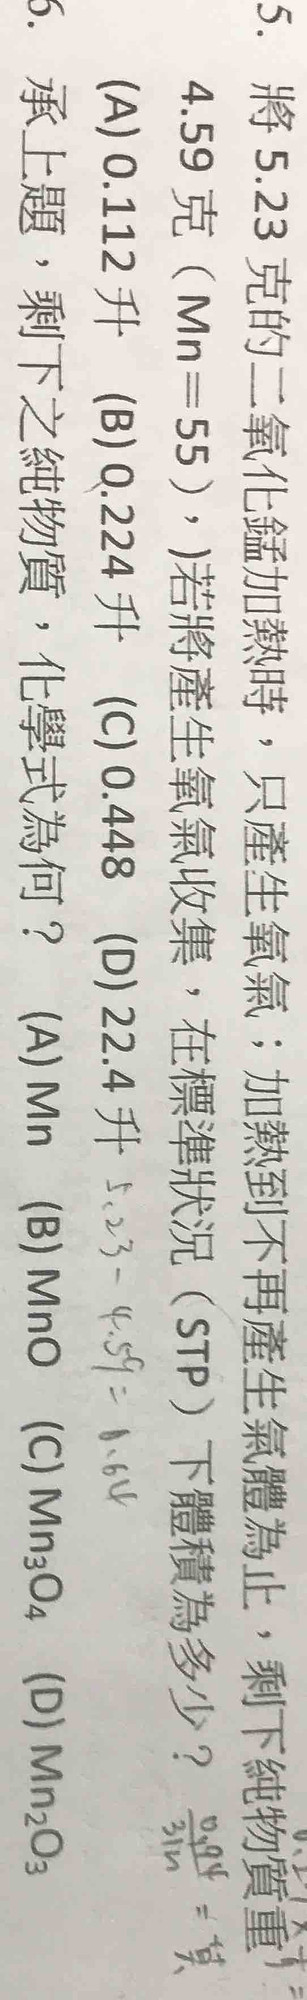 5. 將 5.23 克的二氧化錳加熱時，只產生氧氣；加熱到不再產生氣體為止，剩下純物質重
4.59 克（Mn＝55），)若將產生氧氣收集，在標準狀況（STP）下體積為多少？
(A) 0.112 升 (B) 0.224 升 (C) 0.448 (D) 22.4 升 5.23 - 4.59 = 0.64
6. 承上題，剩下之純物質，化學式為何？ (A) Mn (B) MnO (C) Mn₃O₄ (D) Mn₂O₃